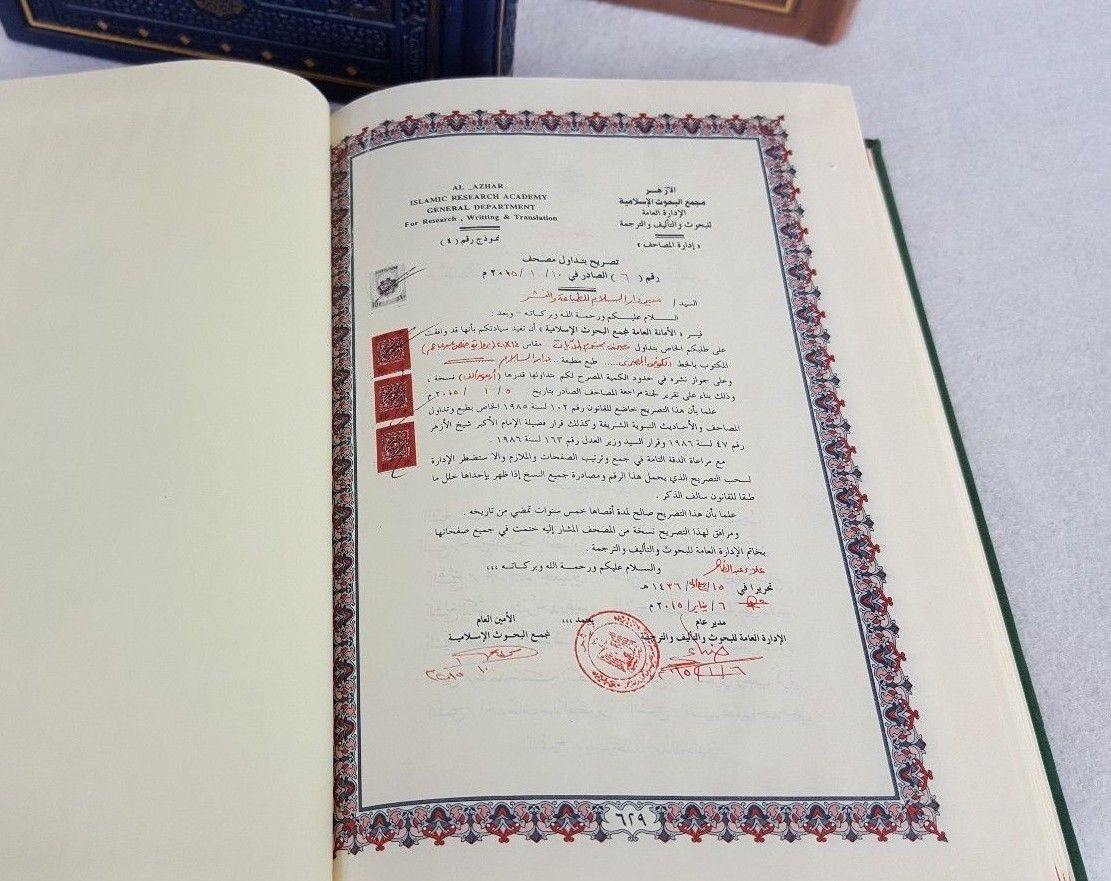 AL _AZHAR
ISLAMIC RESEARCH ACADEMY
GENERAL DEPARTMENT
For Research , Writting & Translation
الأزهر
مجمع البحوث الإسلامية
الإدارة العامة
للبحوث والتأليف والترجمة
« إدارة المصاحف »
نموذج رقم ( ٤ )
تصريح بتداول مصحف
رقم ( ٦ ) الصادر في ١٠ / ١ / ٢٠١٥ م
السيد / مدير دار السلام للطباعة والنشر
السلام عليكم ورحمة الله وبركاته – وبعد :
« الأمانة العامة لمجمع البحوث الإسلامية » أن تفيد سيادتكم بأنها قد وافقت
على طلبكم الخاص بتداول مصحف مقاس
المكتوب بالخط طبع مطبعة .. دار السلام
وعلى جواز نشره في حدود الكمية المصرح لكم بتداولها قدرها ( ) نسخة ،
وذلك بناء على تقرير لجنة مراجعة المصاحف الصادر بتاريخ ٥ / ١ / ٢٠١٥ م
علما بأن هذا التصريح خاضع للقانون رقم ١٠٢ لسنة ١٩٨٥ الخاص بطبع وتداول
المصاحف والأحاديث النبوية الشريفة وكذلك قرار فضيلة الإمام الأكبر شيخ الأزهر
رقم ٤٧ لسنة ١٩٨٦ وقرار السيد وزير العدل رقم ١٦٣ لسنة ١٩٨٦ .
مع مراعاة الدقة التامة في جمع وترتيب الصفحات والملازم والا ستضطر الإدارة
لسحب التصريح الذي يحمل هذا الرقم ومصادرة جميع النسخ إذا ظهر بإحداها خلل ما
طبقا للقانون سالف الذكر .
علما بأن هذا التصريح صالح لمدة أقصاها خمس سنوات تمضي من تاريخه .
ومرافق لهذا التصريح نسخة من المصحف المشار إليه ختمت في جميع صفحاتها
بخاتم الإدارة العامة للبحوث والتأليف والترجمة .
والسلام عليكم ورحمة الله وبركاته ،،،
تحريرا في ١٥ / / ١٤٣٦ هـ
٦ / يناير / ٢٠١٥ م
مدير عام
الإدارة العامة للبحوث والتأليف والترجمة
يعتمد ،،،
الأمين العام
لمجمع البحوث الإسلامية
٦٢٩